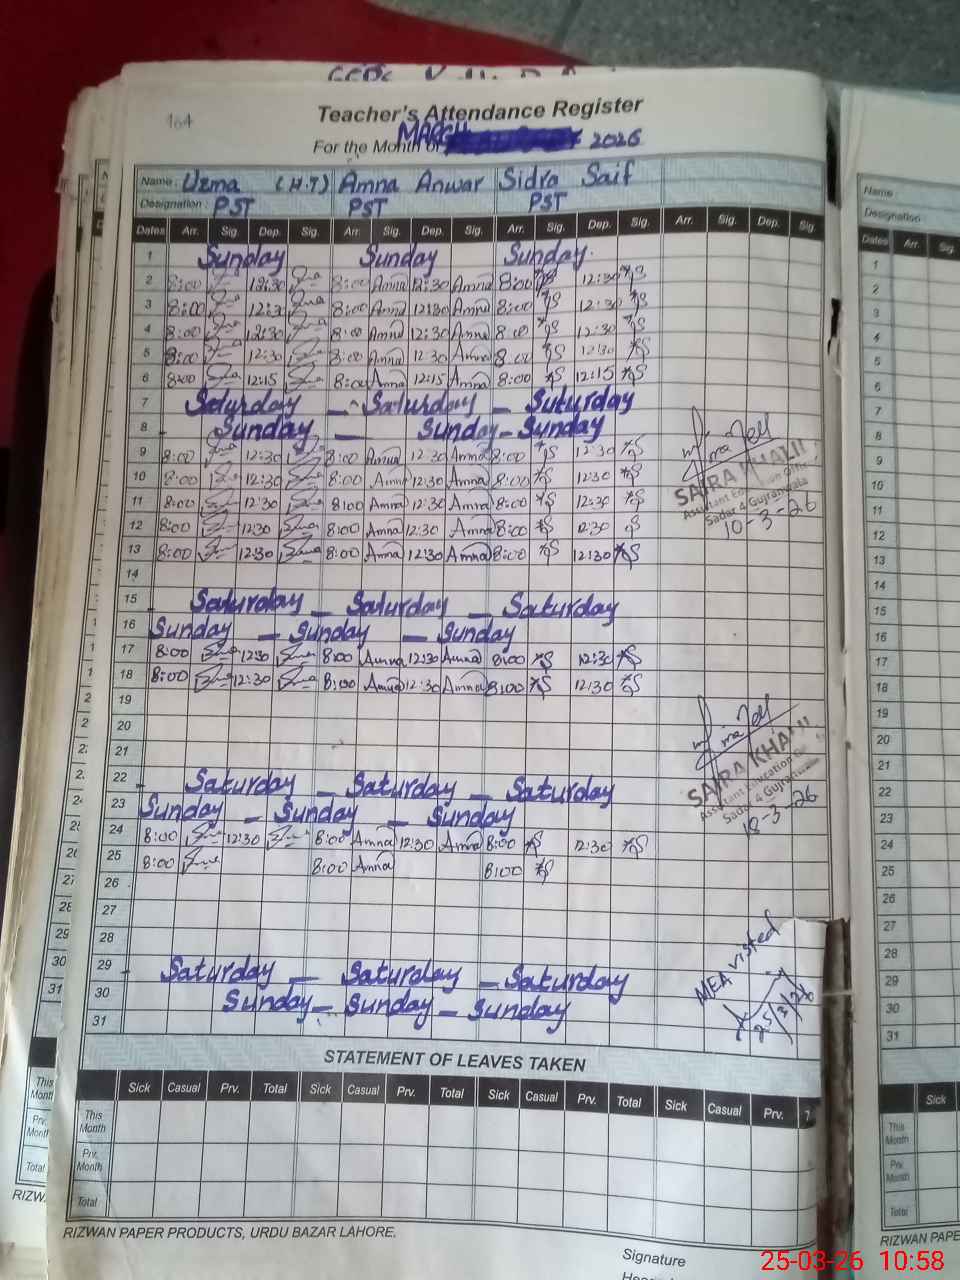 164
Teacher's Attendance Register
For the Month of MARCH 2026
Name: Uzma (H.T) Amna Anwar Sidra Saif
Designation: PST PST PST
Dates Arr. Sig. Dep. Sig. Arr. Sig. Dep. Sig. Arr. Sig. Dep. Sig. Arr. Sig. Dep. Sig.
1 Sunday Sunday Sunday.
2 8:00 12:30 8:00 Amna 12:30 Amna 8:00 12:30
3 8:00 12:30 8:00 Amna 12:30 Amna 8:00 12:30
4 8:00 12:30 8:00 Amna 12:30 Amna 8:00 12:30
5 8:00 12:30 8:00 Amna 12:30 Amna 8:00 12:30
6 8:00 12:15 8:00 Amna 12:15 Amna 8:00 12:15
7 Saturday - Saturday - Saturday
8 Sunday - Sunday - Sunday
9 8:00 12:30 8:00 Amna 12:30 Amna 8:00 12:30
10 8:00 12:30 8:00 Amna 12:30 Amna 8:00 12:30
11 8:00 12:30 8:00 Amna 12:30 Amna 8:00 12:30
12 8:00 12:30 8:00 Amna 12:30 Amna 8:00 12:30
13 8:00 12:30 8:00 Amna 12:30 Amna 8:00 12:30
14
15 Saturday - Saturday - Saturday
16 Sunday - Sunday - Sunday
17 8:00 12:30 8:00 Amna 12:30 Amna 8:00 12:30
18 8:00 12:30 8:00 Amna 12:30 Amna 8:00 12:30
19
20
21
22 Saturday - Saturday - Saturday
23 Sunday - Sunday - Sunday
24 8:00 12:30 8:00 Amna 12:30 Amna 8:00 12:30
25 8:00 8:00 Amna 8:00
26
27
28
29 Saturday - Saturday - Saturday
30 Sunday - Sunday - Sunday
31
SAIRA KHALIL
Assistant Education Officer
Sadar 4 Gujranwala
10-3-26
SAIRA KHALIL
Assistant Education
Sadar 4 Gujranwala
18-3-26
MEA visted
25/3/26
STATEMENT OF LEAVES TAKEN
Sick Casual Prv. Total Sick Casual Prv. Total Sick Casual Prv. Total Sick Casual Prv.
This Month
Prv. Month
Total
RIZWAN PAPER PRODUCTS, URDU BAZAR LAHORE.
Signature
Name:
Designation
Dates Arr. Sig.
1
2
3
4
5
6
7
8
9
10
11
12
13
14
15
16
17
18
19
20
21
22
23
24
25
26
27
28
29
30
31
Sick
This Month
Prv. Month
Total
RIZWAN PAPE
25-03-26 10:58